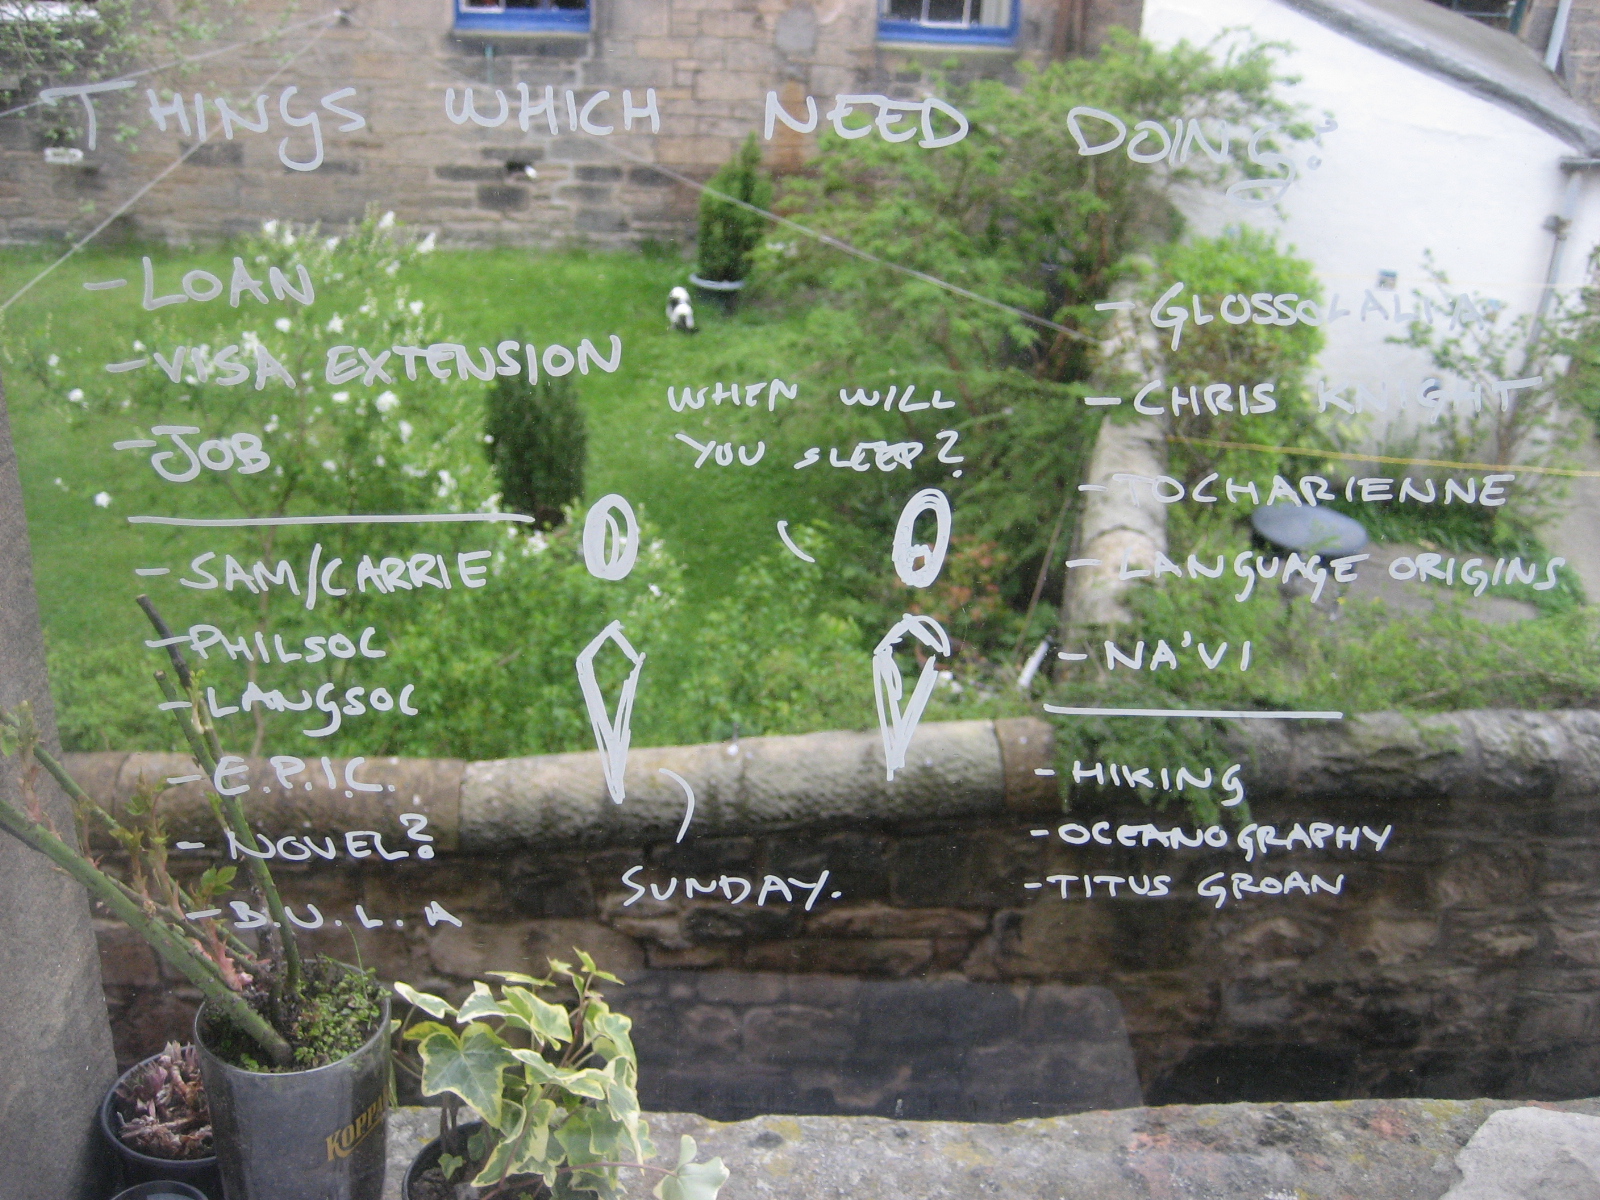 THINGS WHICH NEED DOING?
- LOAN
- VISA EXTENSION
- JOB
- SAM/CARRIE
- PHILSOC
- LANGSOC
- E.P.I.C.
- NOVEL?
- B.U.L.A
WHEN WILL
YOU SLEEP?
SUNDAY.
- GLOSSOLALIA
- CHRIS KNIGHT
- TOCHARIENNE
- LANGUAGE ORIGINS
- NA'VI
- HIKING
- OCEANOGRAPHY
- TITUS GROAN